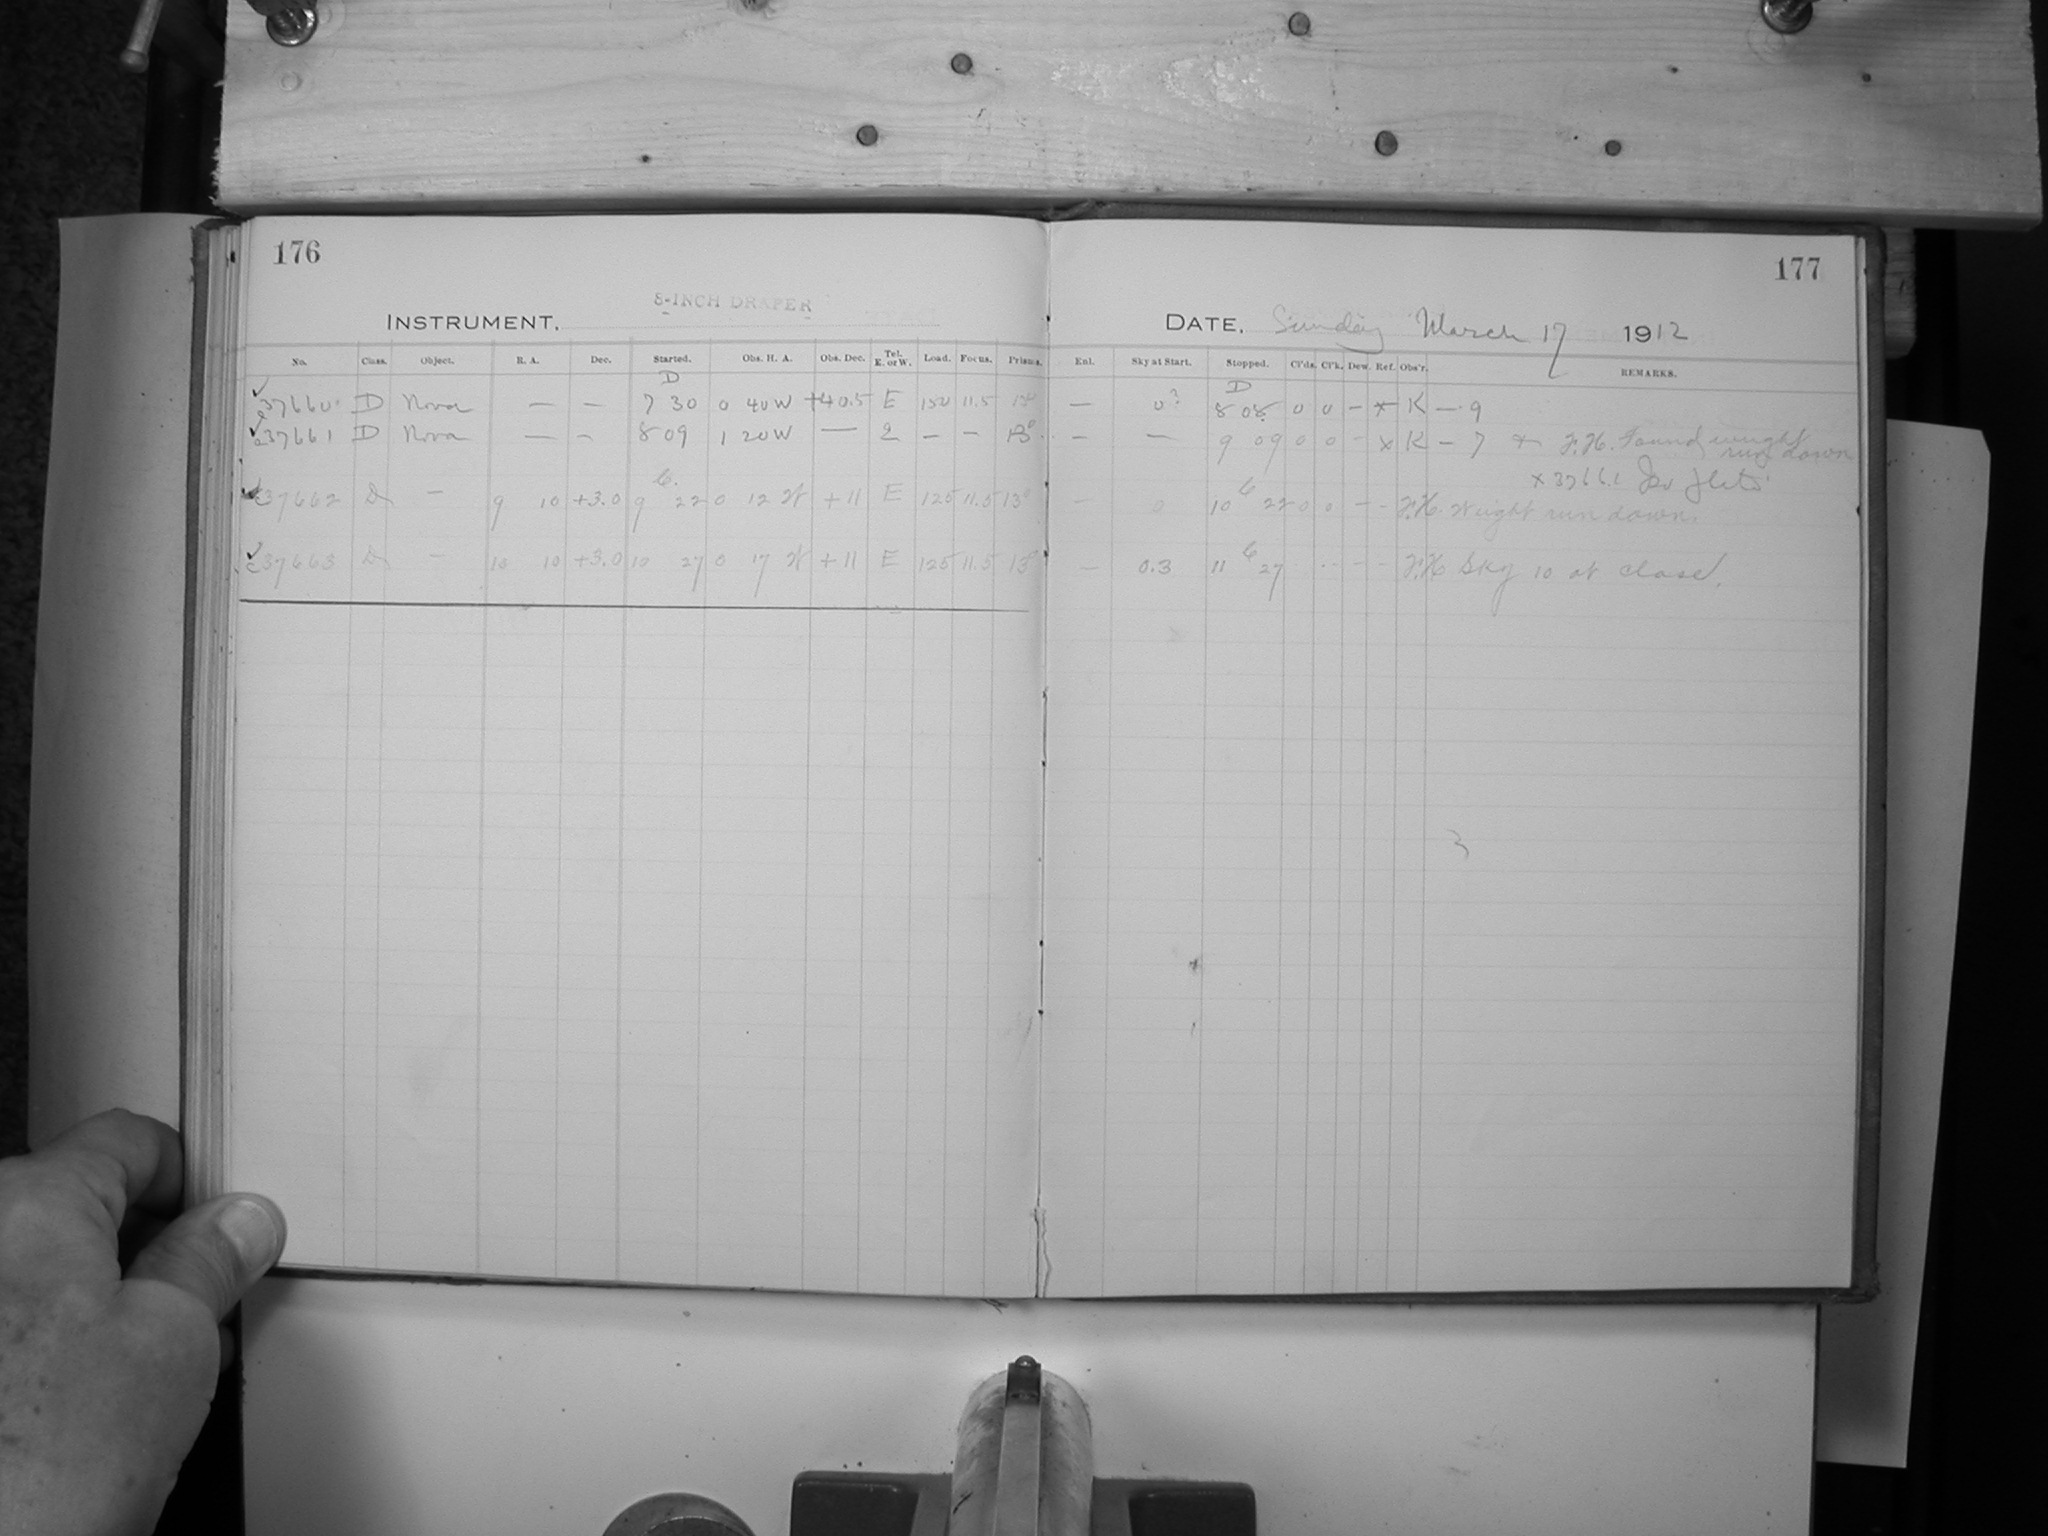 176
177
8-INCH DRAPER
INSTRUMENT,
DATE, Sunday March 17 1912
No. Class. Object. R. A. Dec. Started. Obs. H. A. Obs. Dec. Tel. E. or W. Load. Focus. Prisms. Enl. Sky at Start. Stopped. Cl'ds. Cl'k. Dew. Ref. Obs'r. REMARKS.
D D
37660 D Nova — — 7 30 0 40 W +40.5 E 150 11.5 13° — 0? 8 08 0 0 — x K — 9
37661 D Nova — — 8 09 1 20 W — — — 13° — — 9 09 0 0 - x K — 7 F.H. Found weight run down
x 37661
C37662 D — 9 10 +3.0 9 22 0 12 W +11 E 125 11.5 13° — 0 10 22 0 0 — - F.H. Weight run down
C37663 D — 10 10 +3.0 10 27 0 17 W +11 E 125 11.5 13° — 0.3 11 27 - - - - F.H Sky 10 at close.
3